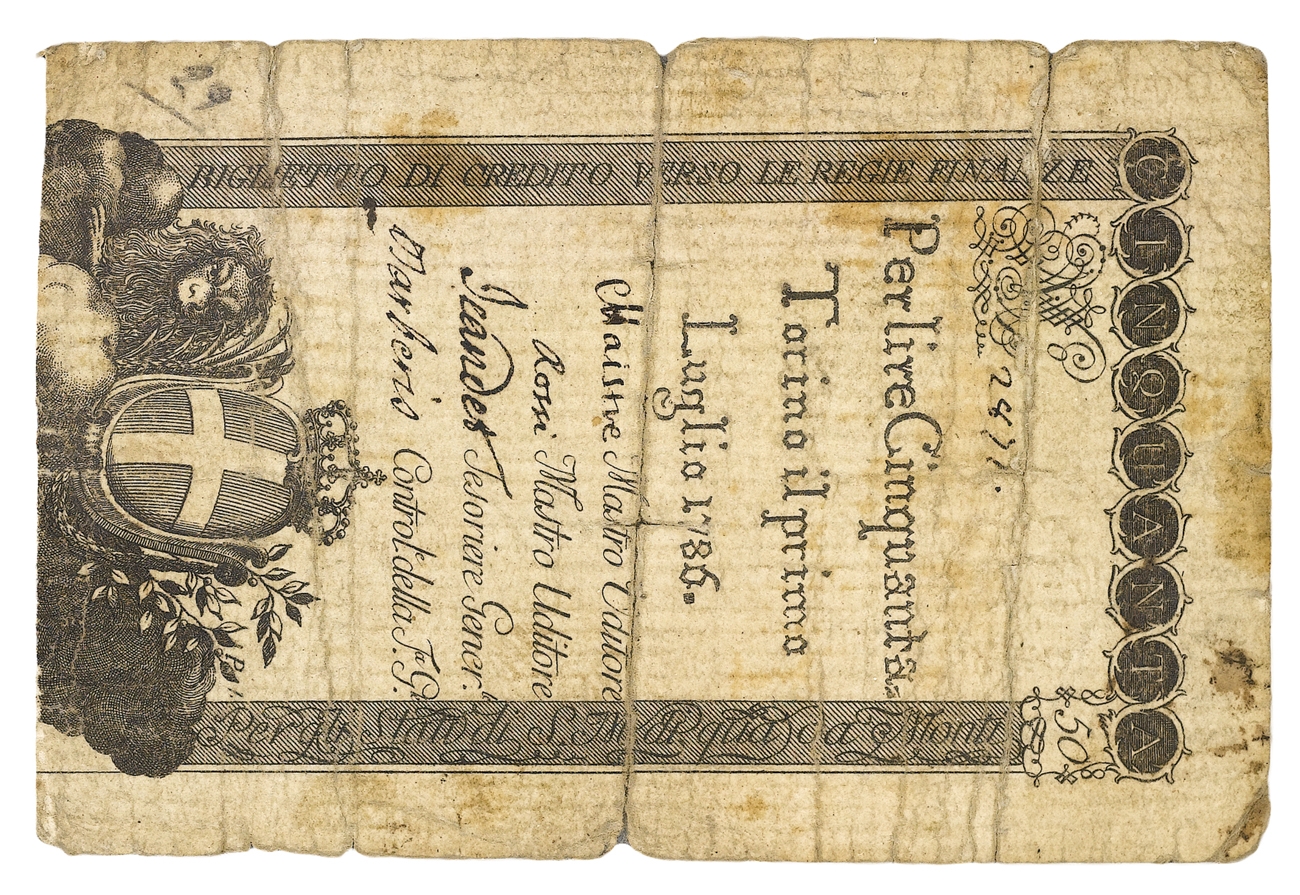 CINQUANTA
50
2477.
Per livre Cinquanta
Torino il primo
Luglio 1786.
Maistre Mastro Uditore
Rossi Mastro Uditore
Tesoriere Gener.
Control. della T. G.
BIGLIETTO DI CREDITO VERSO LE REGIE FINANZE
Per gli Stati di S. M. di qua da Monti